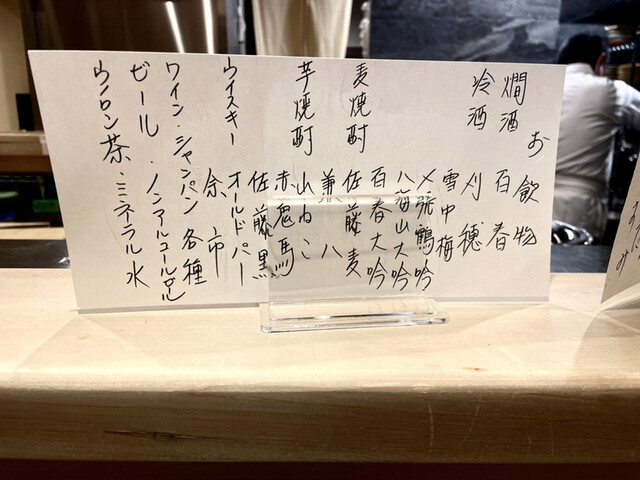 お飲物
燗酒 百春
冷酒 刈穂
雪中梅
〆張鶴吟
八海山大吟
百春大吟
麦焼酎 佐藤麦
兼八
芋焼酎 山ねこ
赤兎馬
佐藤黒
ウイスキー オールドパー
余市
ワイン・シャンパン各種
ビール・ノンアルコールビール
ウーロン茶・ミネラル水